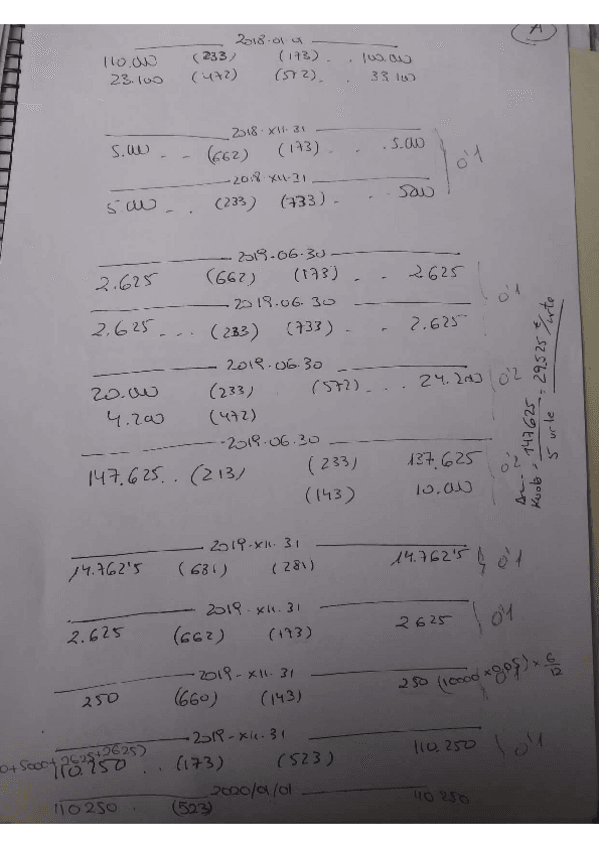 A
2018-01-01
110.000 (233) (173) . . 100.000
23.100 (472) (572) . . 33.100
2018-XII-31
5.000 . - (662) (173) . - . 5.000 0'1
2018-XII-31
5.000 - . (233) (733) - . 5000
2019-06-30
2.625 (662) (173) . . 2625 0'1
2019-06-30
2.625 . . . (233) (733) . . 2.625
2019-06-30
20.000 (233) (572) . . . 24.200 0'2
4.200 (472)
2019-06-30
147.625 . . (213) (233) 137.625 0'2
(143) 10.000
147.625 / 5 urte = 29.525 €/urte
2019-XII-31
14.762'5 (681) (281) 14.762'5 0'1
2019-XII-31
2.625 (662) (173) 2625 0'1
2019-XII-31
250 (660) (143) 250 (10000 × 0,05) × 6/12
2019-XII-31
0+5000+2625+2625)
110.250 . . (173) (523) 110.250 0'1
2020/01/01
110 250 (523) 110 250